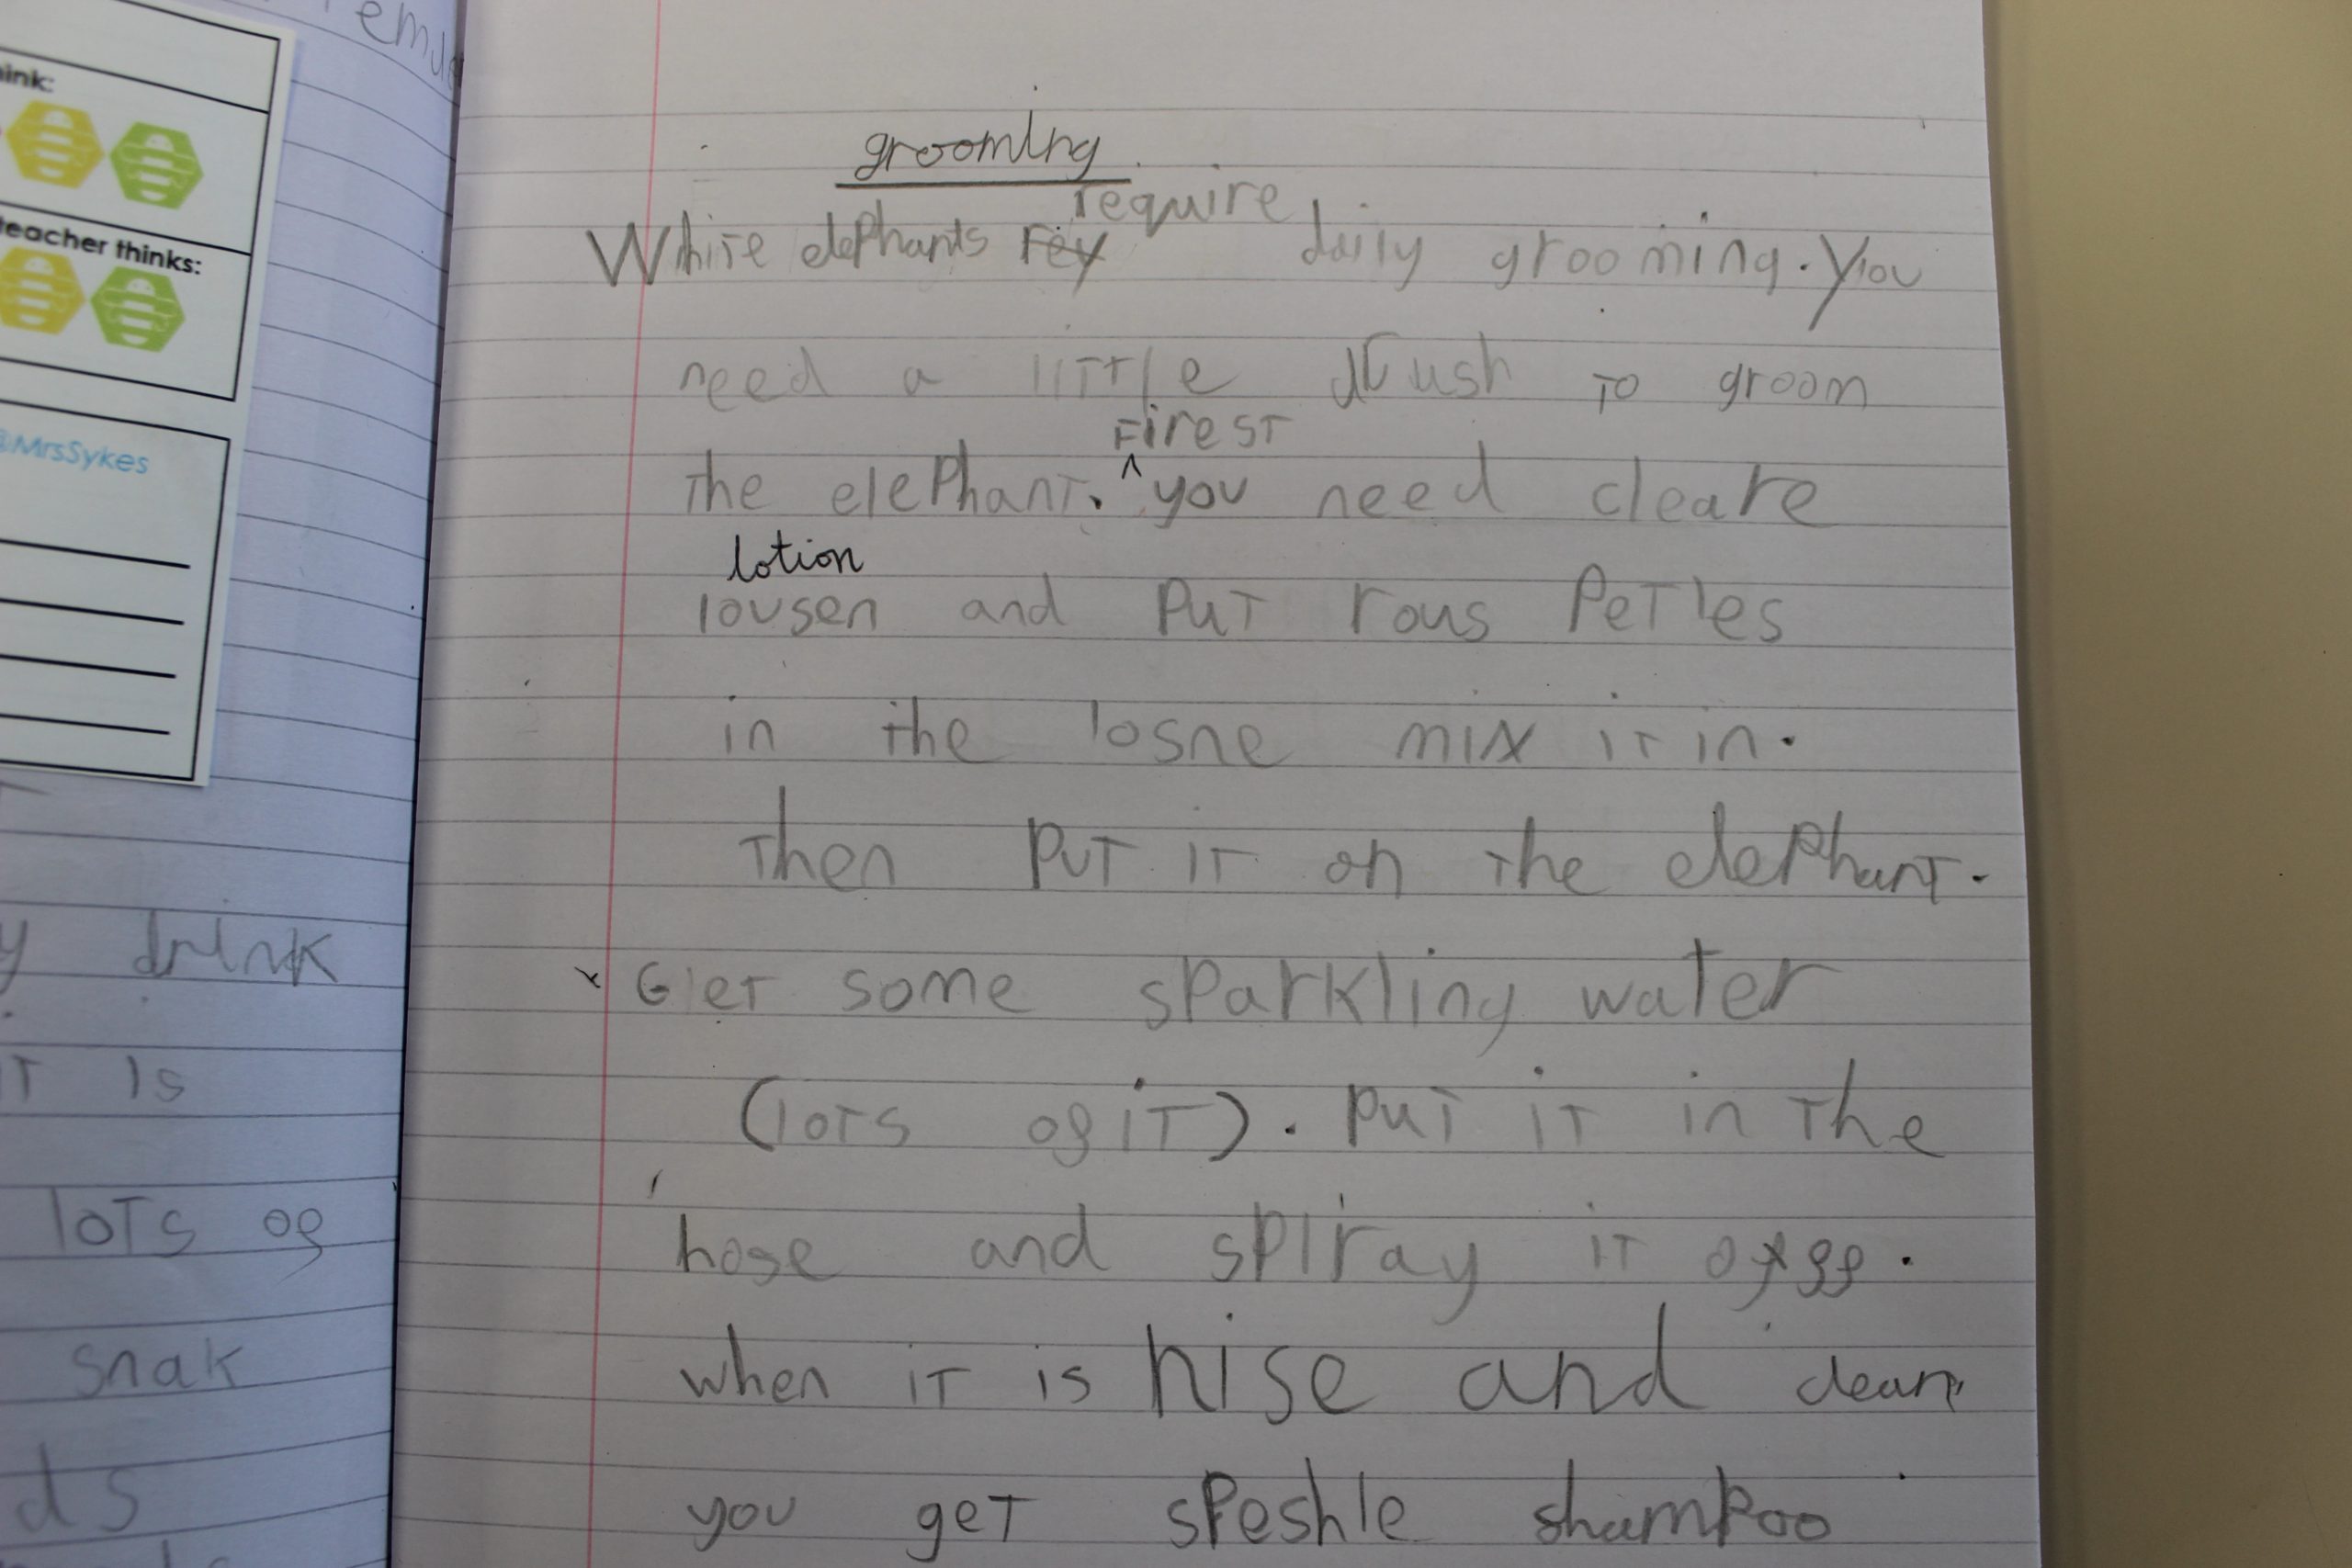 ink:
teacher thinks:
@MrsSykes
y drink
IT Is
lots of
snak
ds
grooming
require
White elephants rey daily grooming. You
need a little brush to groom
Firest
the elephant. ^ you need cleare
lotion
lousen and put rous Petles
in the losne mix it in.
Then put it on the elephant.
Get some sparkling water
(lots of it). put it in the
hose and spiray it off.
when it is nise and clean
you get speshle shampoo